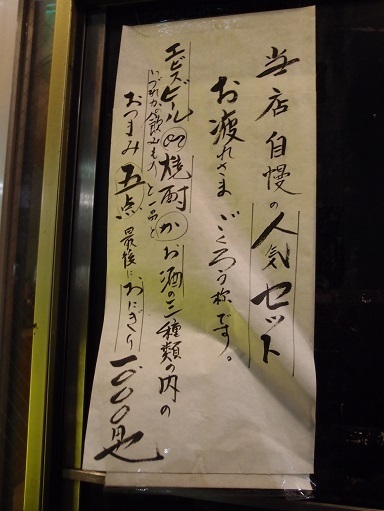 当店自慢の人気セット
お疲れさまごくろう様です。
エビスビールか焼酎かお酒の三種類の内の
いづれか飲みもの一品と
おつまみ五点最後におにぎり一、〇〇〇円也